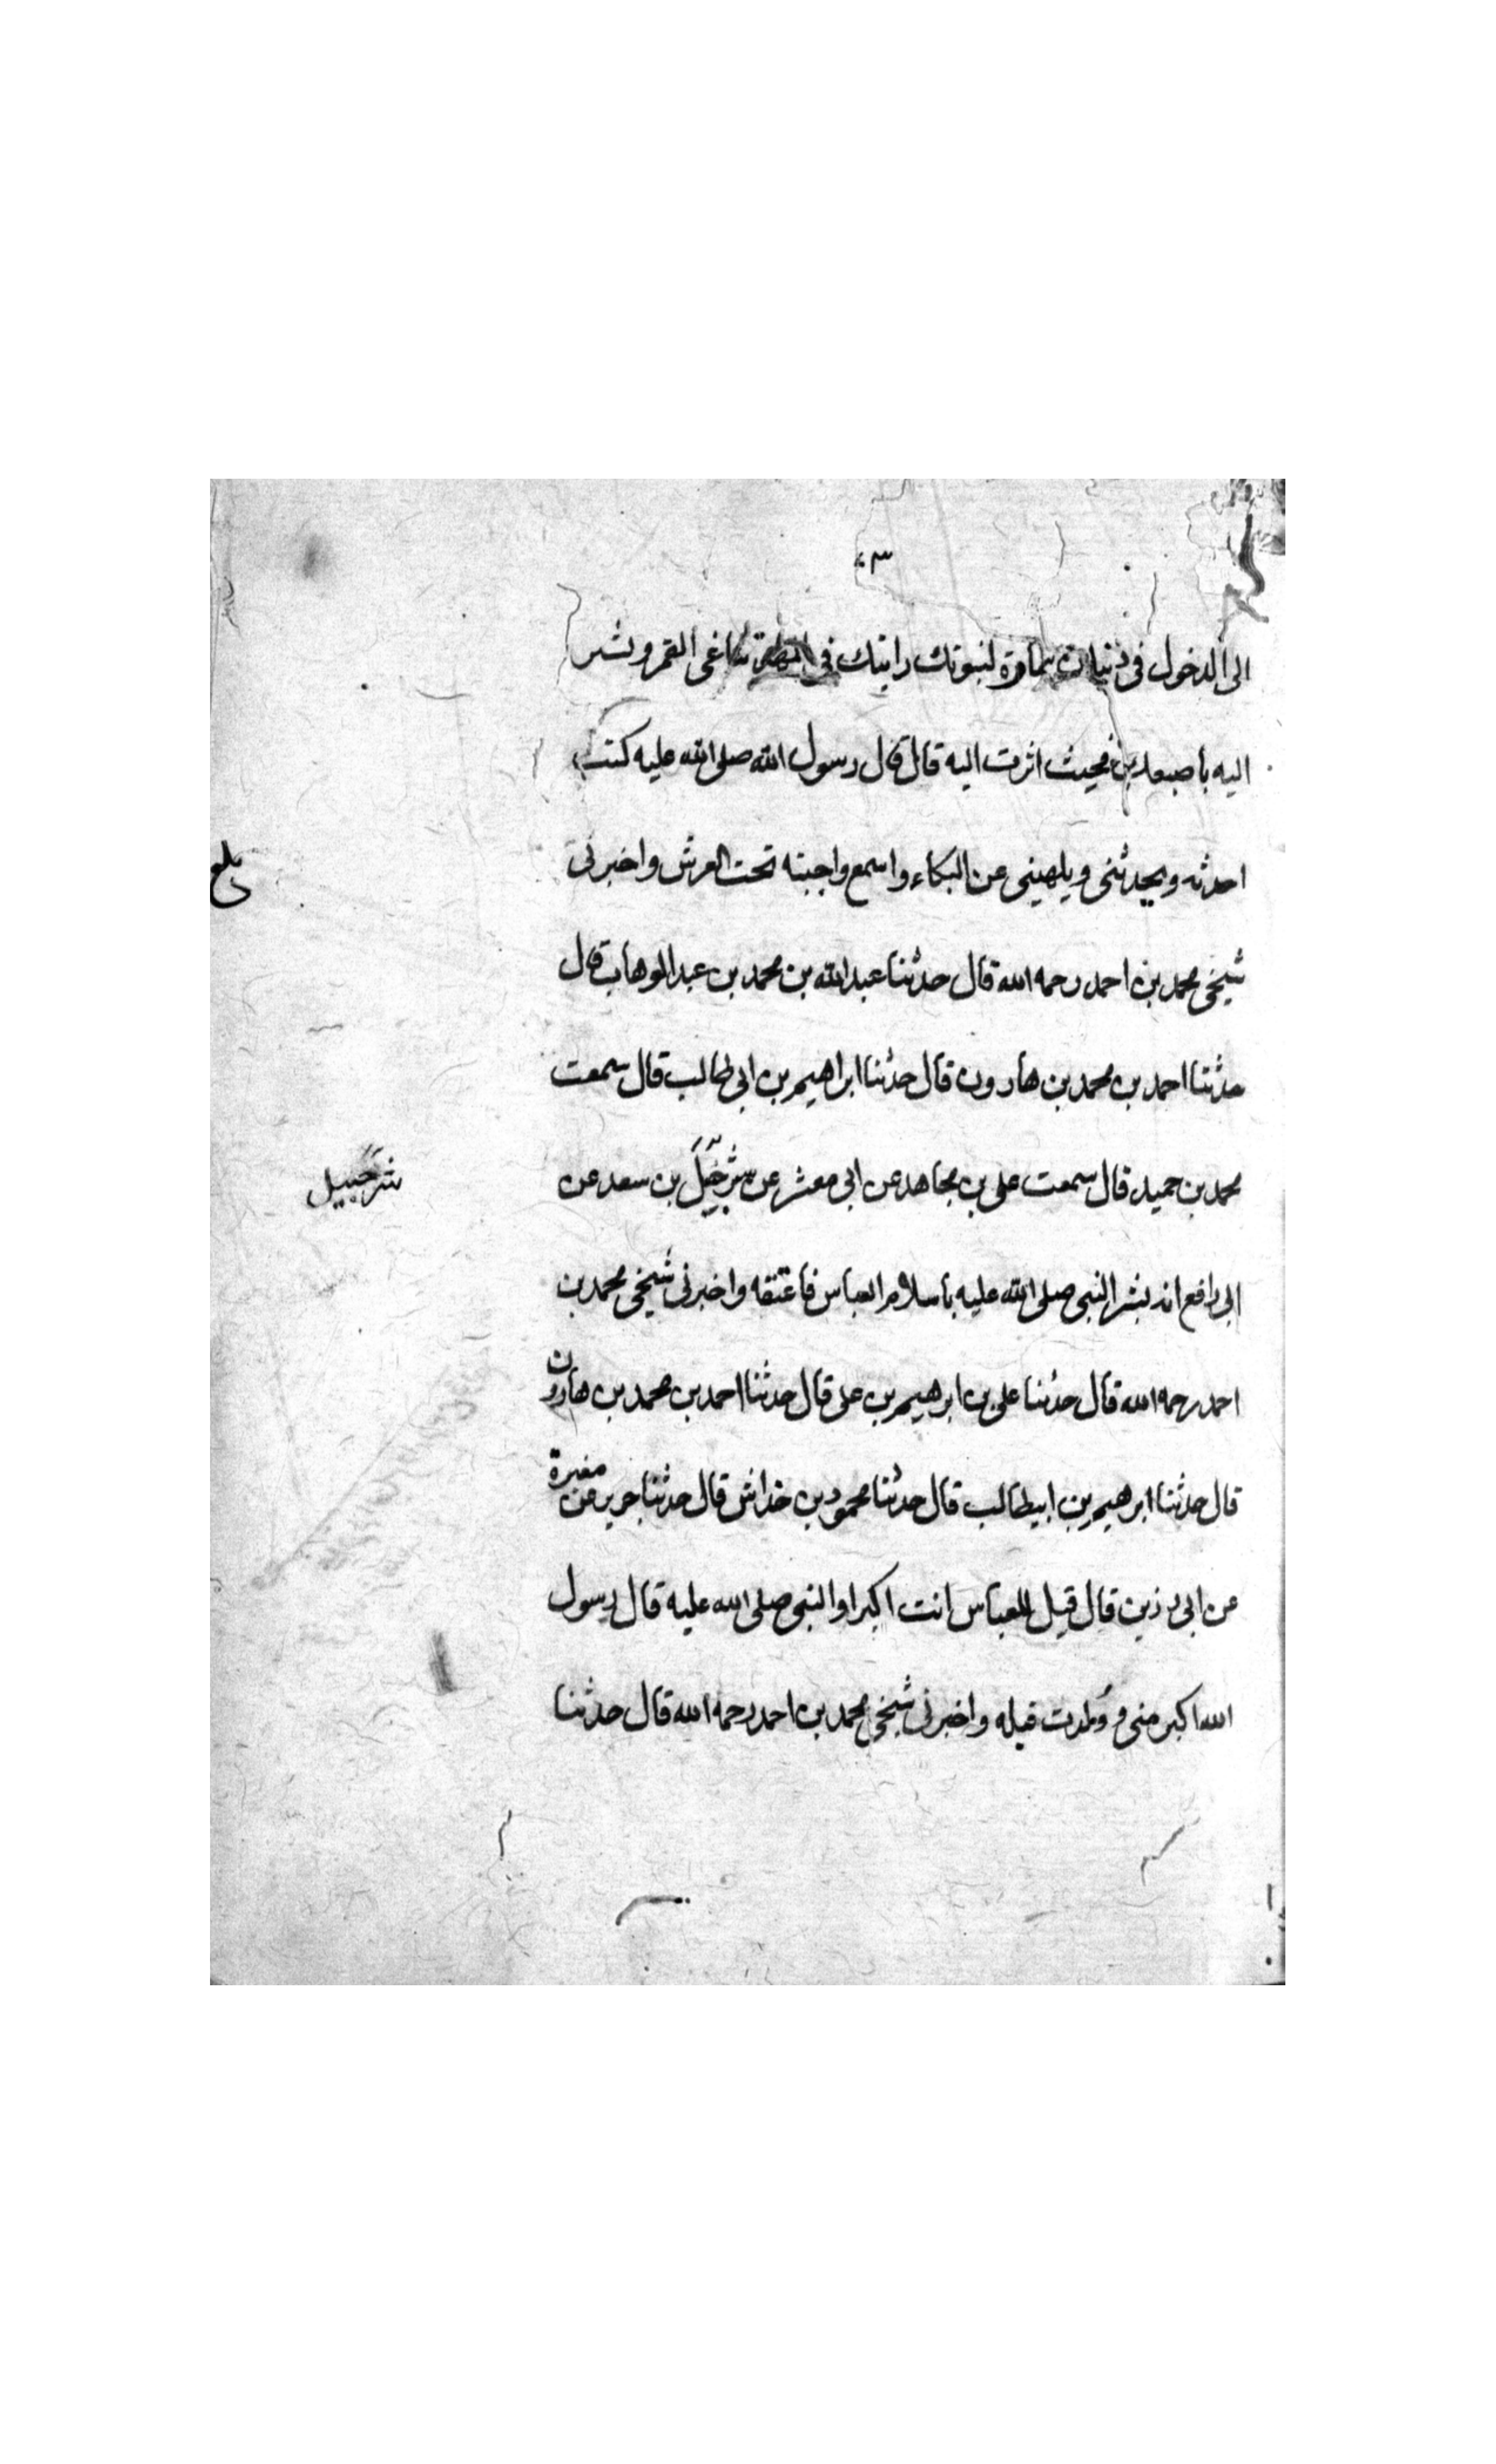 ٣٠
الى الدخول فى دينك امارة لنبوتك رايتك فى المهد تناغى القمر وتشير
اليه باصبعك فحيث اشرت اليه قال قال رسول الله صلى الله عليه كنت
احدثه ويحدثنى ويلهينى عن البكاء واسمع واجبته تحت العرش واخبرنى
بلغ
شيخى محمد بن احمد رحمه الله قال حدثنا عبد الله بن محمد بن عبد الوهاب قال
حدثنا احمد بن محمد بن هارون قال حدثنا ابراهيم بن ابى طالب قال سمعت
محمد بن حميد قال سمعت على بن مجاهد عن ابى معشر عن شرحبيل بن سعد عن
شرحبيل
ابى رافع انه بشر النبى صلى الله عليه باسلام العباس فاعتقه واخبرنى شيخى محمد بن
احمد رحمه الله قال حدثنا على بن ابرهيم بن على قال حدثنا احمد بن محمد بن هارون
قال حدثنا ابرهيم بن ابيطالب قال حدثنا محمود بن خداش قال حدثنا جرير عن مغيرة
عن ابى رزين قال قيل للعباس انت اكبر او النبى صلى الله عليه قال رسول
الله اكبر منى و ولدت قبله واخبرنى شيخى محمد بن احمد رحمه الله قال حدثنا